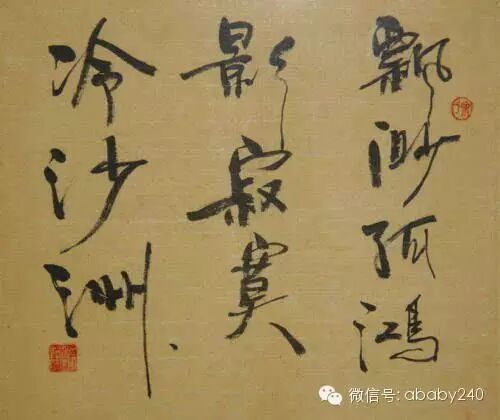 飘渺孤鸿
影寂寞
冷沙洲
微信号: ababy240